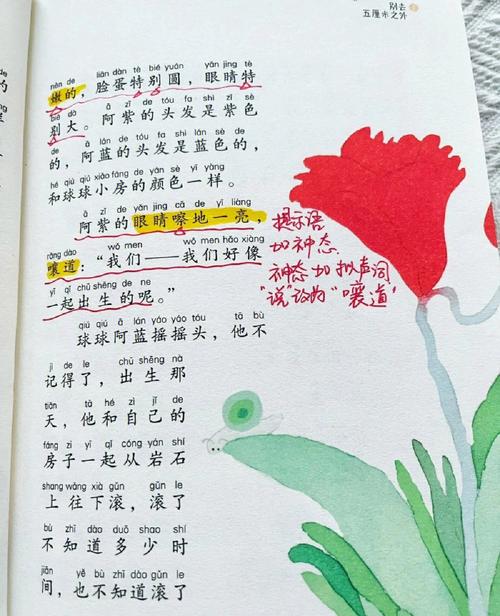 别去
五厘米之外
nèn de liǎn dàn tè bié yuán yǎn jīng tè
嫩的，脸蛋特别圆，眼睛特
bié dà ā zǐ de tóu fa shì zǐ sè
别大。阿紫的头发是紫色
de ā lán de tóu fa shì lán sè de
的，阿蓝的头发是蓝色的，
hé qiú qiú xiǎo fáng de yán sè yī yàng
和球球小房的颜色一样。
ā zǐ de yǎn jing cā de yī liàng
阿紫的眼睛嚓地一亮，
rǎng dào wǒ men wǒ men hǎo xiàng
嚷道：“我们——我们好像
yī qǐ chū shēng de ne
一起出生的呢。”
提示语
加神态
神态加拟声词
“说”改为“嚷道”
qiú qiú ā lán yáo yáo tóu tā bù
球球阿蓝摇摇头，他不
jì de le chū shēng nà
记得了，出生那
tiān tā hé zì jǐ de
天，他和自己的
fáng zi yī qǐ cóng yán shí
房子一起从岩石
shang wǎng xià gǔn gǔn le
上往下滚，滚了
bù zhī dào duō shao shí
不知道多少时
jiān yě bù zhī dào gǔn le
间，也不知道滚了